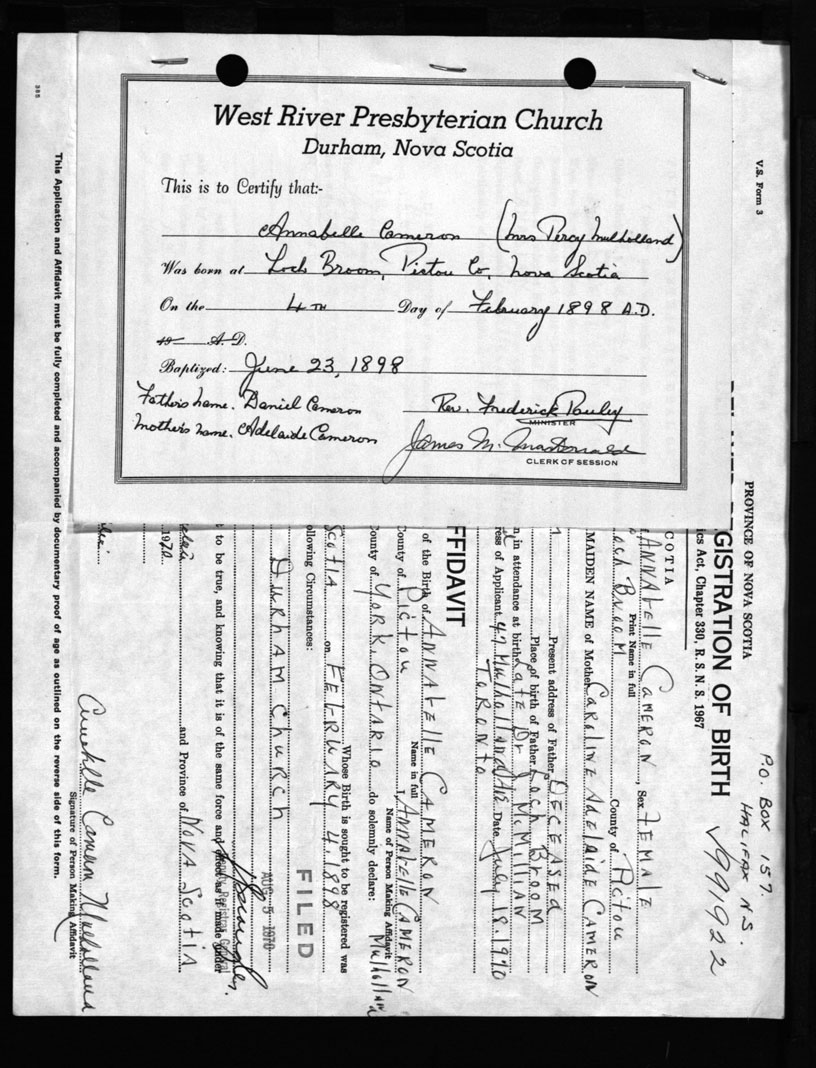 West River Presbyterian Church
Durham, Nova Scotia
This is to Certify that:-
Annabelle Cameron (Mrs Percy Mulholland)
Was born at Loch Broom, Pictou Co, Nova Scotia
On the 4TH Day of February 1898 A.D.
19 A.D.
Baptized: June 23, 1898
Father's name. Daniel Cameron
Mother's name. Adelaide Cameron
Rev. Frederick Pauley
MINISTER
James M. MacDonald
CLERK OF SESSION
V.S. Form 3
P.O. BOX 157.
HALIFAX N.S.
991922
PROVINCE OF NOVA SCOTIA
GISTRATION OF BIRTH
ics Act, Chapter 330, R.S.N.S. 1967
COTIA
ANNABELLE CAMERON, Sex FEMALE
Print Name in full
och BrooM County of Pictou
MAIDEN NAME of Mother CAROLINE ADELAIDE CAMERON
Present address of Father DECEASED
Place of birth of Father Loch BrooM
n, in attendance at birth Late Dr J McMILLIAN
ress of Applicant 47 Mulholland Ave Date July 18.1970
TORONTO
FFIDAVIT
of the Birth of ANNABELLE CAMERON
Name in full
County of Pictou I, ANNABELLE CAMERON Mulholland
Name of Person Making Affidavit
County of YORK, ONTARIO do solemnly declare:
Whose Birth is sought to be registered was
SCOTIA on FEBRUARY 4. 1898
ollowing Circumstances:
DURHAM CHURCH
FILED
AUG 5 1970
Registrar General
t to be true, and knowing that it is of the same force and effect as if made under
and Province of NOVA SCOTIA
1970
Annabelle Cameron Mulholland
Signature of Person Making Affidavit
This Application and Affidavit must be fully completed and accompanied by documentary proof of age as outlined on the reverse side of this form.
385